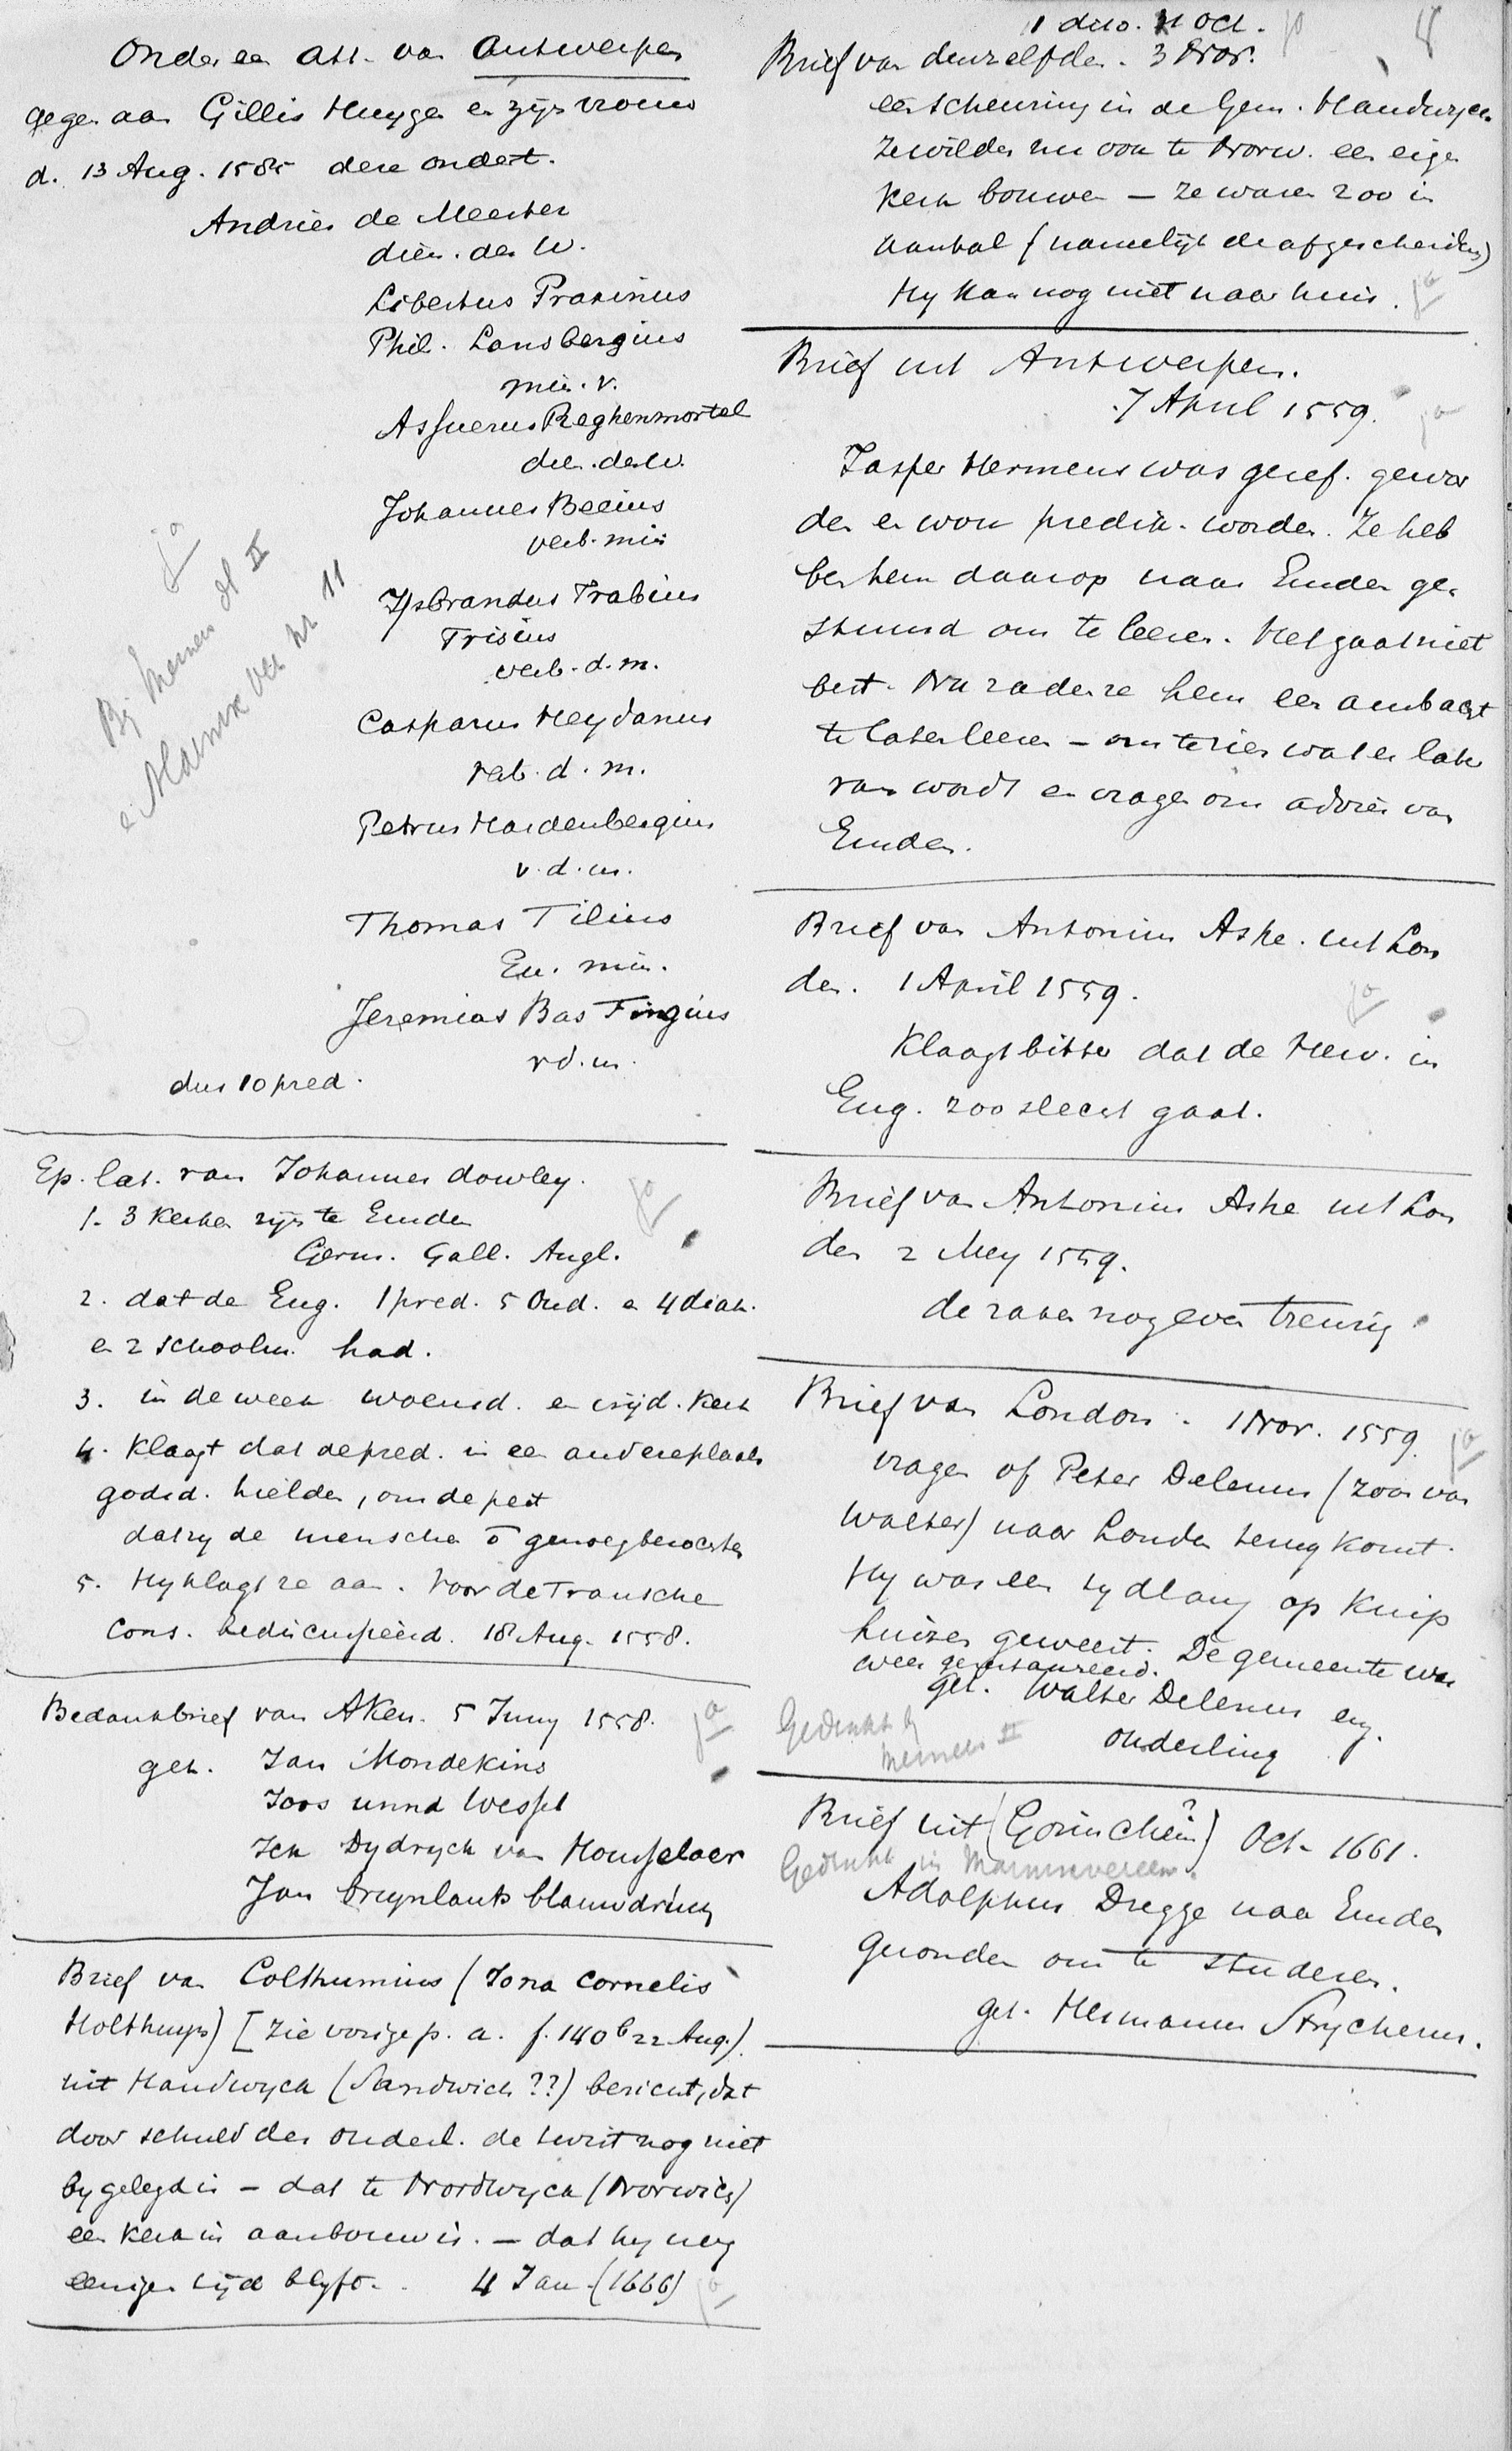 Onder een att. van Antwerpen
gegev. aan Gillis Huyge en zijn vrouw
d. 13 Aug. 1585 dese ondert.
Andries de Meester
dien. des W.
Libertus Fraxinus
Phil. Lansbergius
min. v.
Assuerus Reghenmortel
die. des W.
Johannes Beeius
verb. min
Ysbrandus Trabius
Frisius
verb. d. m.
Casparus Heydanus
verb. d. m.
Petrus Hardenbergius
v. d. m.
Thomas Tilius
Eu. min.
Jeremias Bastingius
v d. m.
dus 10 pred.
ja
Bij Meiners dl II
e Marnix Ver
11
Ep. lat. van Johannes Dowley.
ja
1. 3 Kerken zijn te Emden
Germ. Gall. Angl.
2. dat de Eng. 1 pred. 5 Oud. en 4 diak.
en 2 schoolm. had.
3. in de week woensd. en vrijd. Kerk
4. Klaagt dat de pred. in een andere plaats
godsd. hielden, om de pest
dat zy de menschen õ genoeg bezochten
5. Hy klagt ze aan. Voor de Fransche
Cons. bediscuspieerd. 18 Aug. 1558.
Bedankbrief van Aken. 5 Juny 1558.
ja
get. Jan Mondekins
Joos unnd Wessel
Ick Dydryck van Housselaer
Jan Bruynlants blauwdruck
Brief van Colthumius (Jona Cornelis
Holthuys) [zie vorige p. a. f. 140b 22 Aug.)
uit Handwyck (Sandwich ??) bericht, dat
door schuld der ouderl. de twist nog niet
bygelegd is - dat te Nordwyck (Norwich)
een Kerk in aanbouw is. - dat hy nog
eenigen tijd blyft. 4 Jan (1666)
ja
1 dito. 21 Oct.
ja
Brief van denzelfden. 3 Nov.
een scheuring in de Gem. Handwyck.
Ze wilden nu ook te Norw. een eigen
Kerk bouwen - ze waren 200 in
aantal (namelijk de afgescheidens)
Hy Kan nog niet naar huis.
ja
Brief uit Antwerpen.
7 April 1559.
ja
Jasper Hermens was geref. gewor
den en wou predik. worden. Ze heb
ben hem daarop naar Emden ge-
stuurd om te leeren. Het gaat niet
best. Nu raden ze hem een ambacht
te laten leeren - om te zien wat er later
van wordt en vragen om advies van
Emden.
Brief van Antonius Ashe. uit Lon
den. 1 April 1559.
ja
Klaagt bitter dat de Herv. in
Eng. zoo slecht gaat.
Brief van Antonius Ashe uit Lon
den 2 Mey 1559.
de zaken nog even treurig
Brief van London. 1 Nov. 1559.
ja
vragen of Peter Delenus (zoon van
Walter) naar Londen terug komt.
Hy was een tydlang op Knip
huizen geweest. De gemeente was
weer gerestaureerd.
get. Walter Delenus en
ouderling
Gedrukt bij
Meiners II
Brief uit (Gorinchem?) Oct. 1661.
Gedrukt in Marnixvereen.
Adolphus Dregge naar Emden
gezonden om te studeren.
get. Hermannus Strycherus.